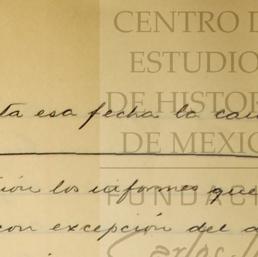 CENTRO D
ESTUDIO
DE HISTOR
DE MEXIC
FUNDAC
Carlos
ta esa fecha la can
ión los informes que
con excepción del a